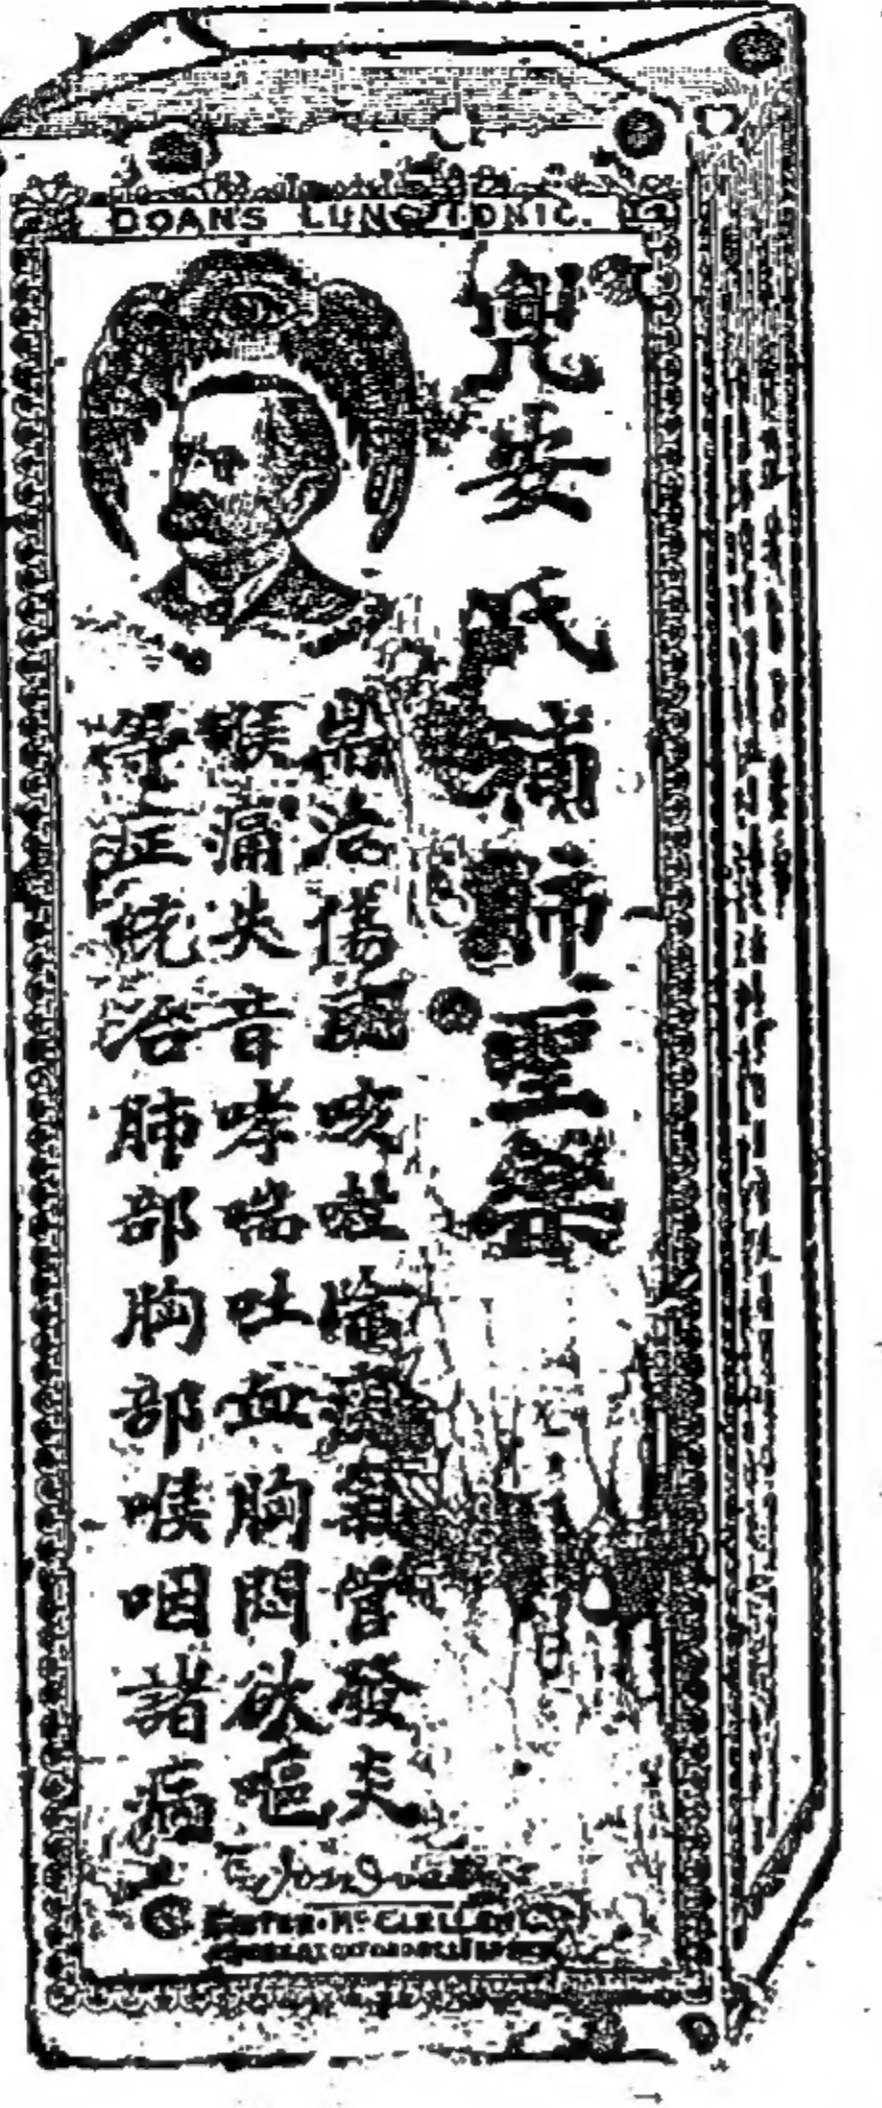 DOANS LUNG TONIC.
兜安氏補肺聖藥
治傷風咳嗽氣管發炎
喉痛失音哮喘吐血胸悶欲嘔
等症統治肺部胸部喉咽諸病
FOSTER-McCLELLAN Co